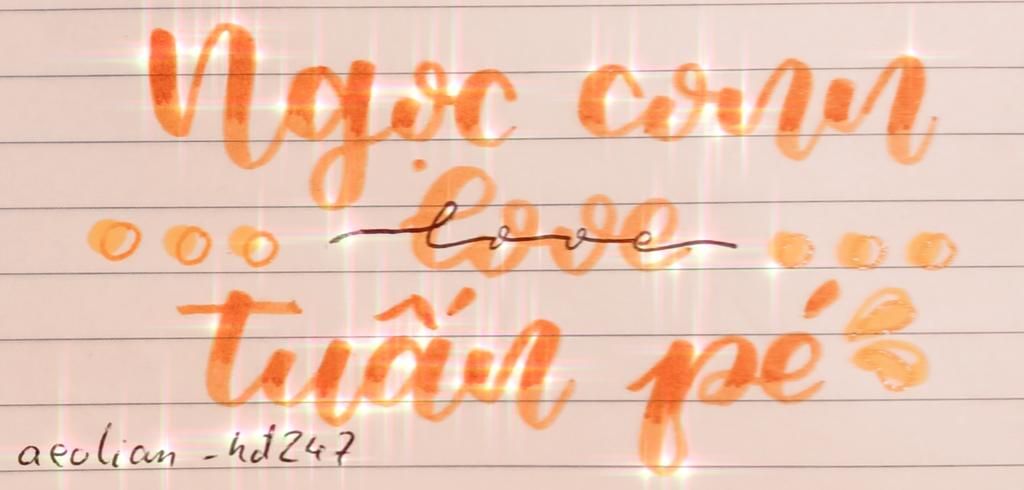 Ngọc conn
love
tuấn pé
aeolian _hd247